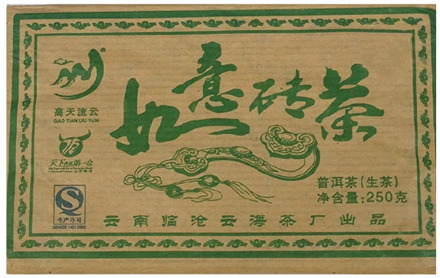 如意砖茶
高天流云
GAO TIAN LIU YUN
普洱茶(生茶)
净含量:250克
生产许可
云南临沧云海茶厂出品